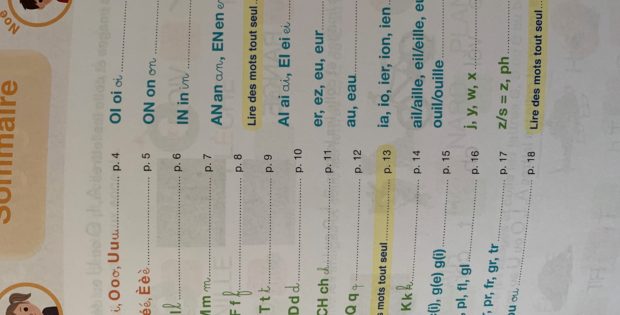 Sommaire
Noé
i, Ooo, Uuu p. 4
éé, Èèè p. 5
l p. 6
Mm m p. 7
F f f p. 8
T t t p. 9
D d d p. 10
CH ch ch p. 11
Q q q p. 12
mots tout seul p. 13
K k k p. 14
g(e) g(i) p. 15
, pl, fl, gl p. 16
, pr, fr, gr, tr p. 17
ou p. 18
OI oi oi
ON on on
IN in in
AN an an, EN en
Lire des mots tout seul
AI ai ai, EI ei ei
er, ez, eu, eur
au, eau
ia, io, ier, ion, ien
ail/aille, eil/eille,
ouil/ouille
j, y, w, x
z/s = z, ph
Lire des mots tout seul